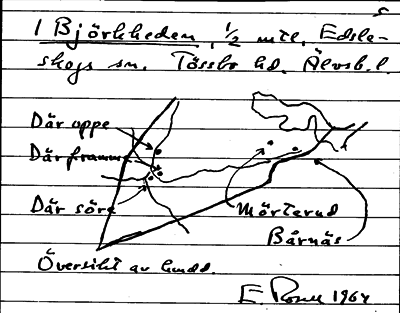 s
1 Björkheden, 1/2 mtl. Edsle-
skogs sn. Tössbo hd. Älvsb. l.
Där uppe
Där framme
Där söre
Mörterud
Bärnäs
Översikt av
E. 1964